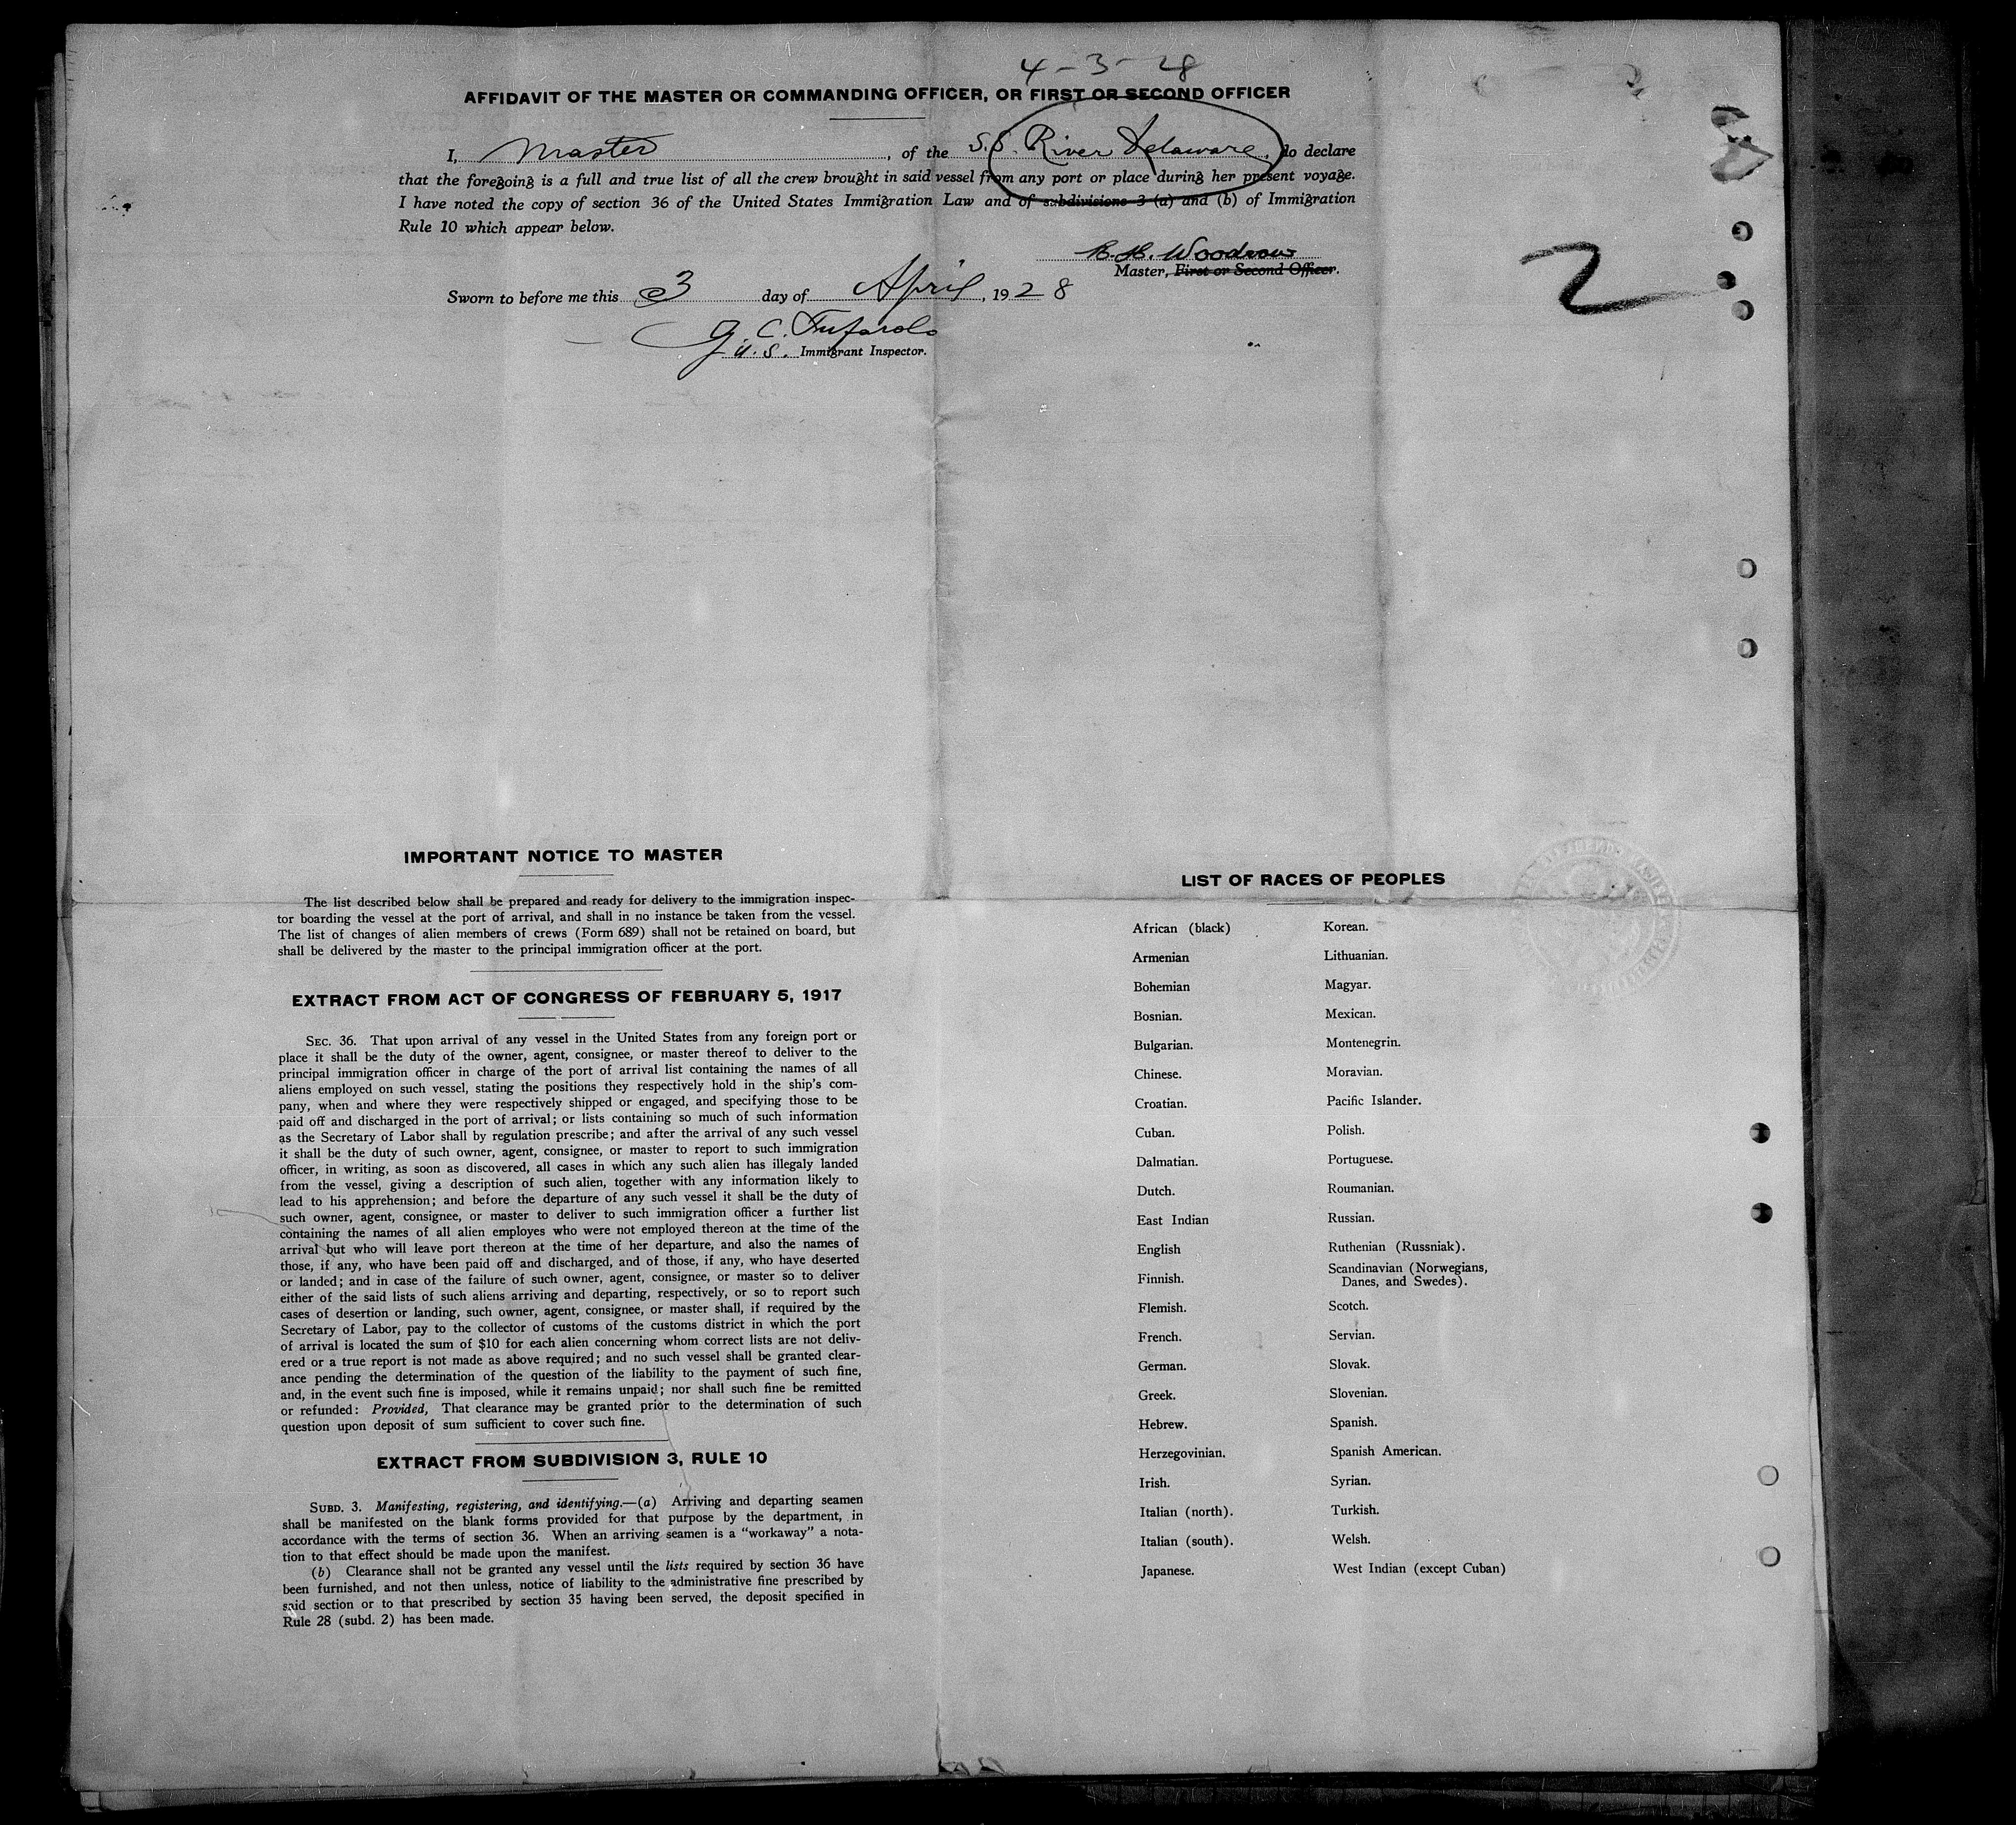 4-3-28
AFFIDAVIT OF THE MASTER OR COMMANDING OFFICER, OR FIRST OR SECOND OFFICER
I, Master, of the S.S. River Delaware, do declare
that the foregoing is a full and true list of all the crew brought in said vessel from any port or place during her present voyage.
I have noted the copy of section 36 of the United States Immigration Law and of subdivisions 3 (a) and (b) of Immigration
Rule 10 which appear below.
Woodrow
Master, First or Second Officer.
Sworn to before me this 3 day of April, 1928
U.S. Immigrant Inspector.
2
IMPORTANT NOTICE TO MASTER
The list described below shall be prepared and ready for delivery to the immigration inspec-
tor boarding the vessel at the port of arrival, and shall in no instance be taken from the vessel.
The list of changes of alien members of crews (Form 689) shall not be retained on board, but
shall be delivered by the master to the principal immigration officer at the port.
EXTRACT FROM ACT OF CONGRESS OF FEBRUARY 5, 1917
SEC. 36. That upon arrival of any vessel in the United States from any foreign port or
place it shall be the duty of the owner, agent, consignee, or master thereof to deliver to the
principal immigration officer in charge of the port of arrival list containing the names of all
aliens employed on such vessel, stating the positions they respectively hold in the ship's com-
pany, when and where they were respectively shipped or engaged, and specifying those to be
paid off and discharged in the port of arrival; or lists containing so much of such information
as the Secretary of Labor shall by regulation prescribe; and after the arrival of any such vessel
it shall be the duty of such owner, agent, consignee, or master to report to such immigration
officer, in writing, as soon as discovered, all cases in which any such alien has illegaly landed
from the vessel, giving a description of such alien, together with any information likely to
lead to his apprehension; and before the departure of any such vessel it shall be the duty of
such owner, agent, consignee, or master to deliver to such immigration officer a further list
containing the names of all alien employes who were not employed thereon at the time of the
arrival but who will leave port thereon at the time of her departure, and also the names of
those, if any, who have been paid off and discharged, and of those, if any, who have deserted
or landed; and in case of the failure of such owner, agent, consignee, or master so to deliver
either of the said lists of such aliens arriving and departing, respectively, or so to report such
cases of desertion or landing, such owner, agent, consignee, or master shall, if required by the
Secretary of Labor, pay to the collector of customs of the customs district in which the port
of arrival is located the sum of $10 for each alien concerning whom correct lists are not deliv-
ered or a true report is not made as above required; and no such vessel shall be granted clear-
ance pending the determination of the question of the liability to the payment of such fine,
and, in the event such fine is imposed, while it remains unpaid; nor shall such fine be remitted
or refunded: Provided, That clearance may be granted prior to the determination of such
question upon deposit of sum sufficient to cover such fine.
EXTRACT FROM SUBDIVISION 3, RULE 10
SUBD. 3. Manifesting, registering, and identifying.—(a) Arriving and departing seamen
shall be manifested on the blank forms provided for that purpose by the department, in
accordance with the terms of section 36. When an arriving seamen is a "workaway" a nota-
tion to that effect should be made upon the manifest.
(b) Clearance shall not be granted any vessel until the lists required by section 36 have
been furnished, and not then unless, notice of liability to the administrative fine prescribed by
said section or to that prescribed by section 35 having been served, the deposit specified in
Rule 28 (subd. 2) has been made.
LIST OF RACES OF PEOPLES
African (black)
Armenian
Bohemian
Bosnian.
Bulgarian.
Chinese.
Croatian.
Cuban.
Dalmatian.
Dutch.
East Indian
English
Finnish.
Flemish.
French.
German.
Greek.
Hebrew.
Herzegovinian.
Irish.
Italian (north).
Italian (south).
Japanese.
Korean.
Lithuanian.
Magyar.
Mexican.
Montenegrin.
Moravian.
Pacific Islander.
Polish.
Portuguese.
Roumanian.
Russian.
Ruthenian (Russniak).
Scandinavian (Norwegians,
Danes, and Swedes).
Scotch.
Servian.
Slovak.
Slovenian.
Spanish.
Spanish American.
Syrian.
Turkish.
Welsh.
West Indian (except Cuban)